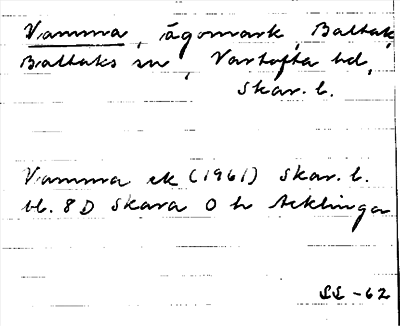 Vamma, ägomark, Baltak,
Baltaks sn, Vartofta hd,
Skar. l.
Vamma ek (1961) Skar. l.
bl. 8D Skara 0 h Acklinga
SL -62